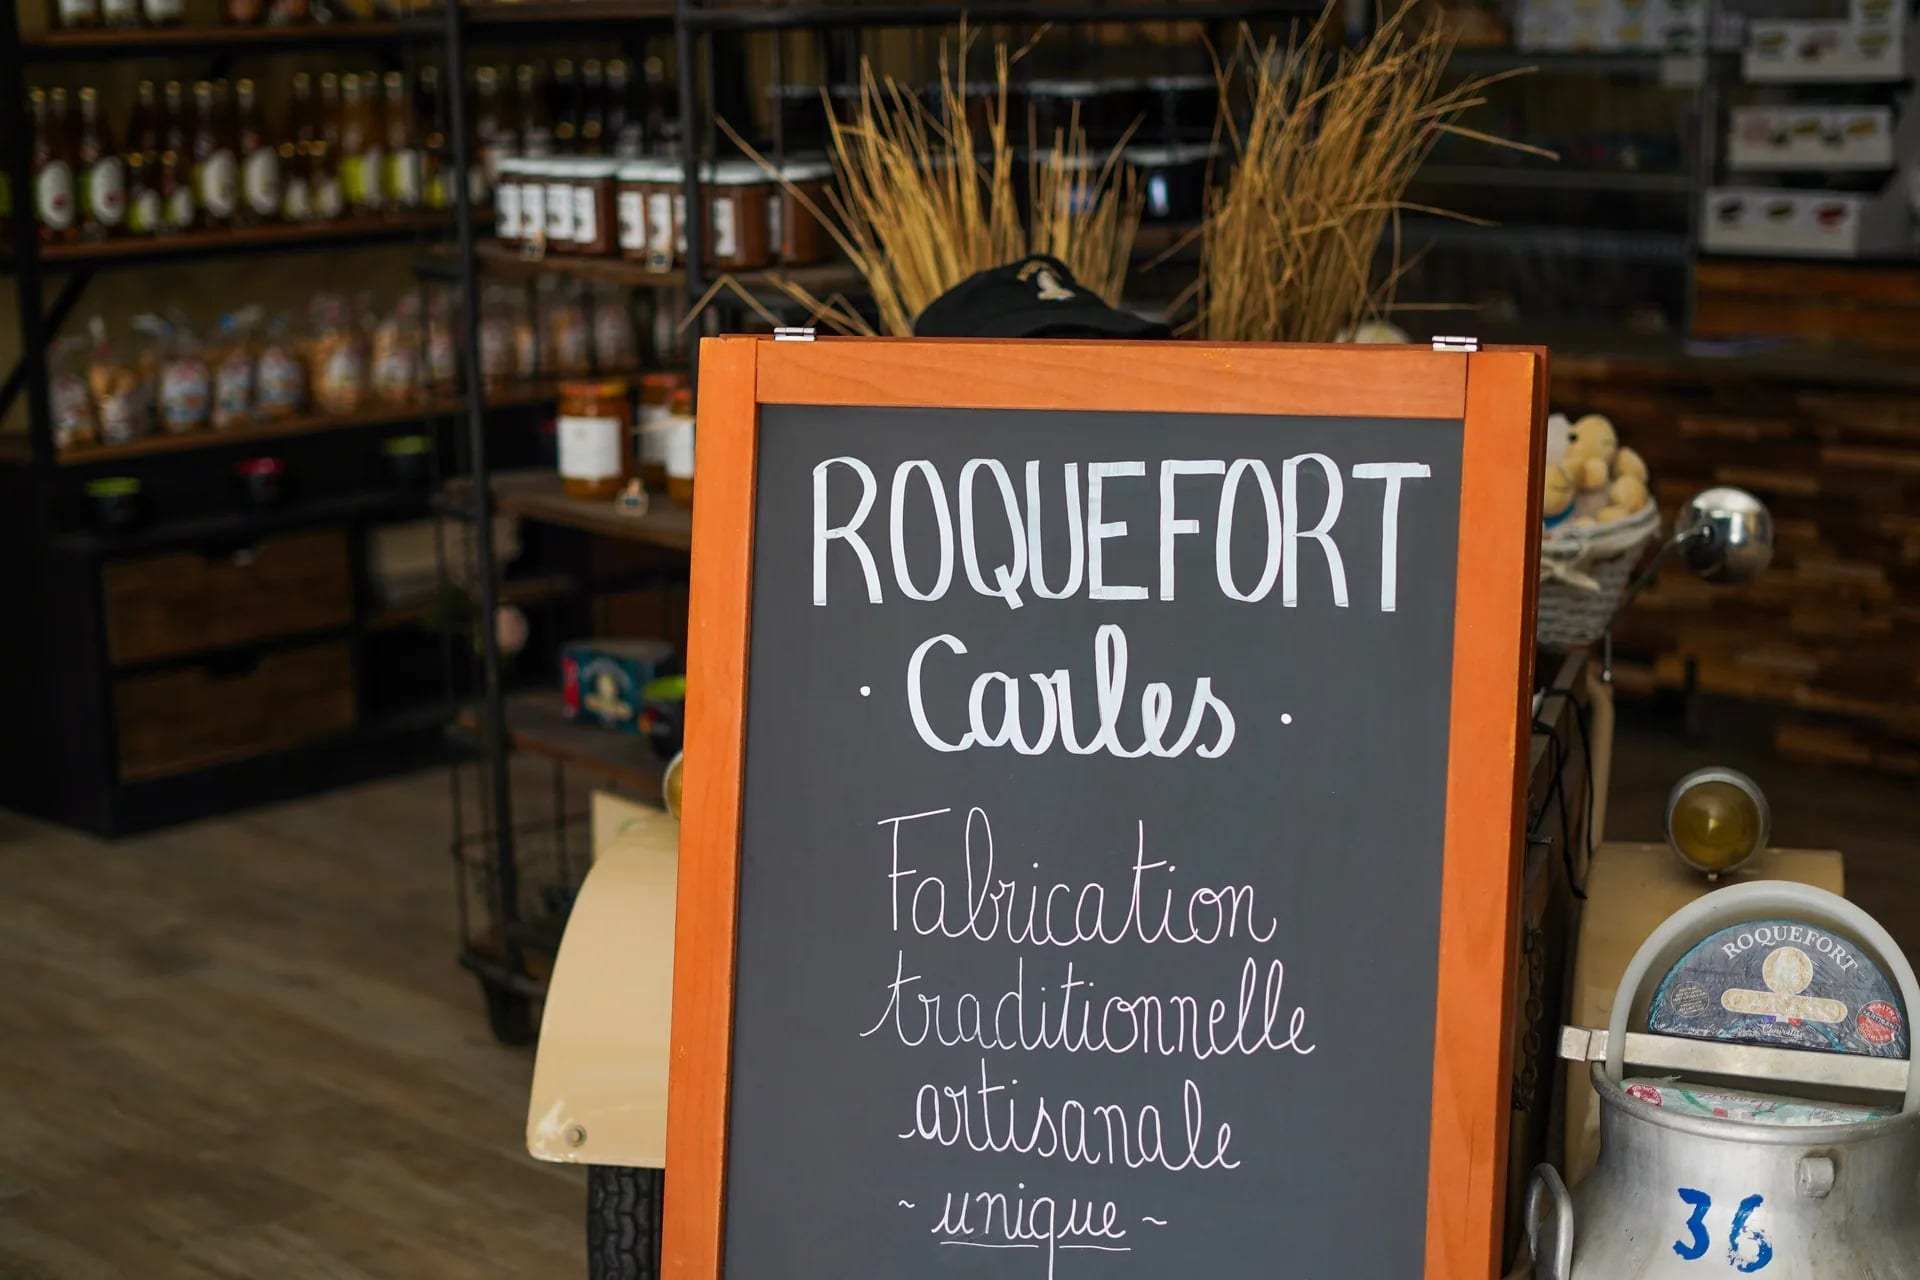 ROQUEFORT
· Carles ·
Fabrication
traditionnelle
artisanale
~ unique ~
ROQUEFORT
CARLES
36